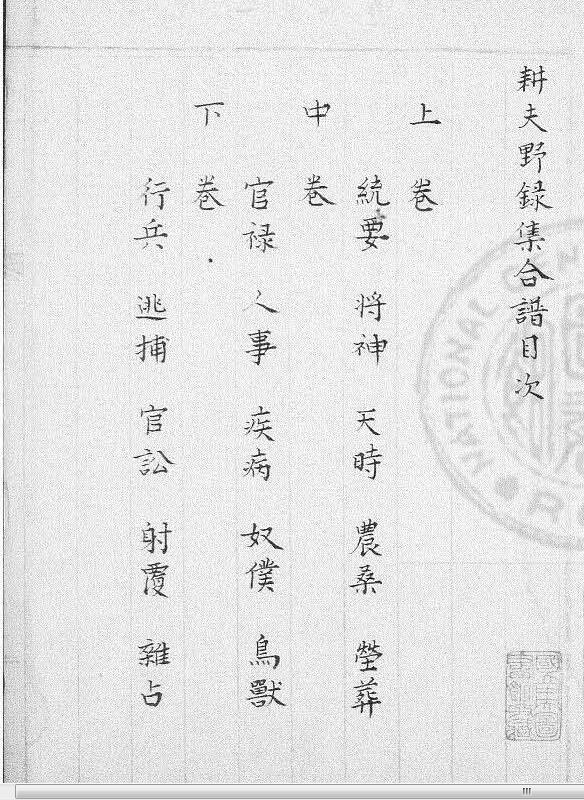 耕夫野録集合譜目次
上卷
統要 将神 天時 農桑 塋葬
中卷
官禄 人事 疾病 奴僕 鳥獸
下卷
行兵 逃捕 官訟 射覆 雜占
NATIONAL CEN